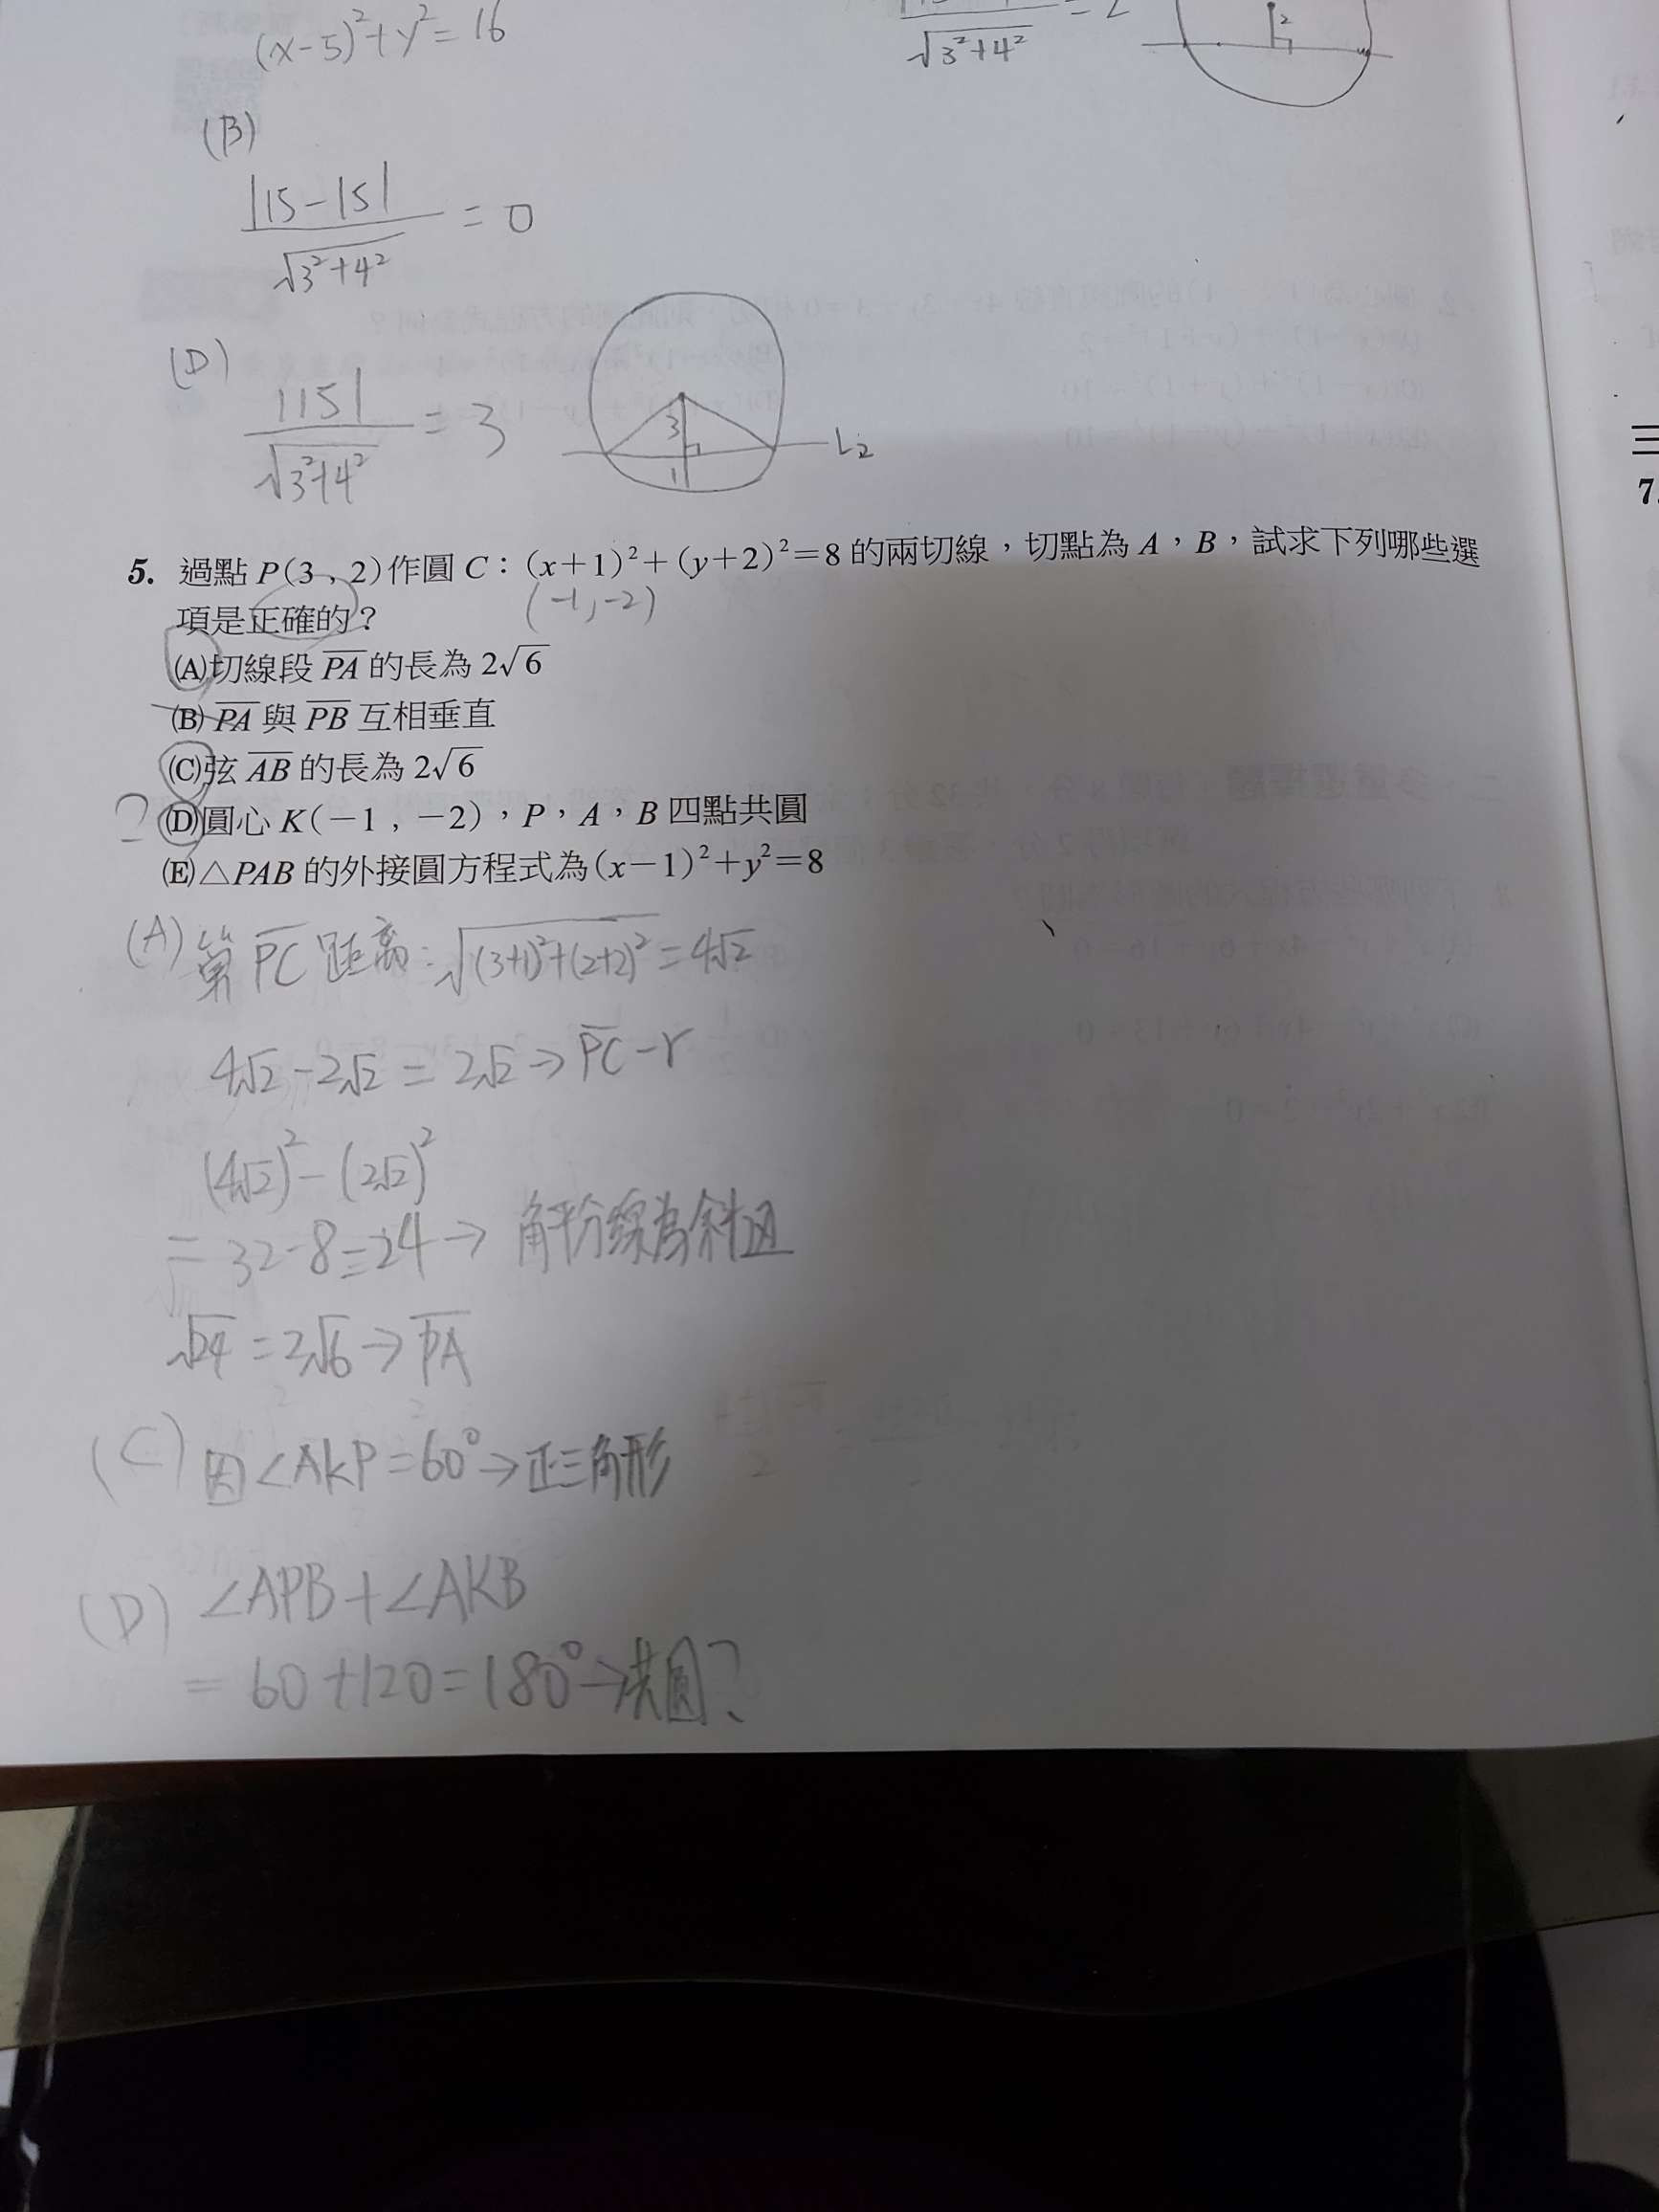 (x-5)²+y²=16
√3²+4² = 2
2
(B)
|15-15|
√3²+4² = 0
(D)
|15|
√3²+4² = 3
3
1
L₂
5. 過點 P(3,2)作圓 C:(x+1)²+(y+2)²=8 的兩切線,切點為 A,B,試求下列哪些選
項是正確的?
(-1,-2)
(A)切線段 P̅A̅ 的長為 2√6
(B) P̅A̅ 與 P̅B̅ 互相垂直
(C)弦 A̅B̅ 的長為 2√6
? (D)圓心 K(-1,-2),P,A,B 四點共圓
(E)△PAB 的外接圓方程式為(x-1)²+y²=8
(A) 算 P̅C̅ 距離:√(3+1)²+(2+2)² = 4√2
4√2-2√2 = 2√2 → P̅C̅-r
(4√2)²-(2√2)²
= 32-8=24 → 角平分線為斜邊
√24 = 2√6 → P̅A̅
(C) 因∠AKP=60°→正三角形
(D) ∠APB+∠AKB
= 60+120=180°→共圓?
三
7.